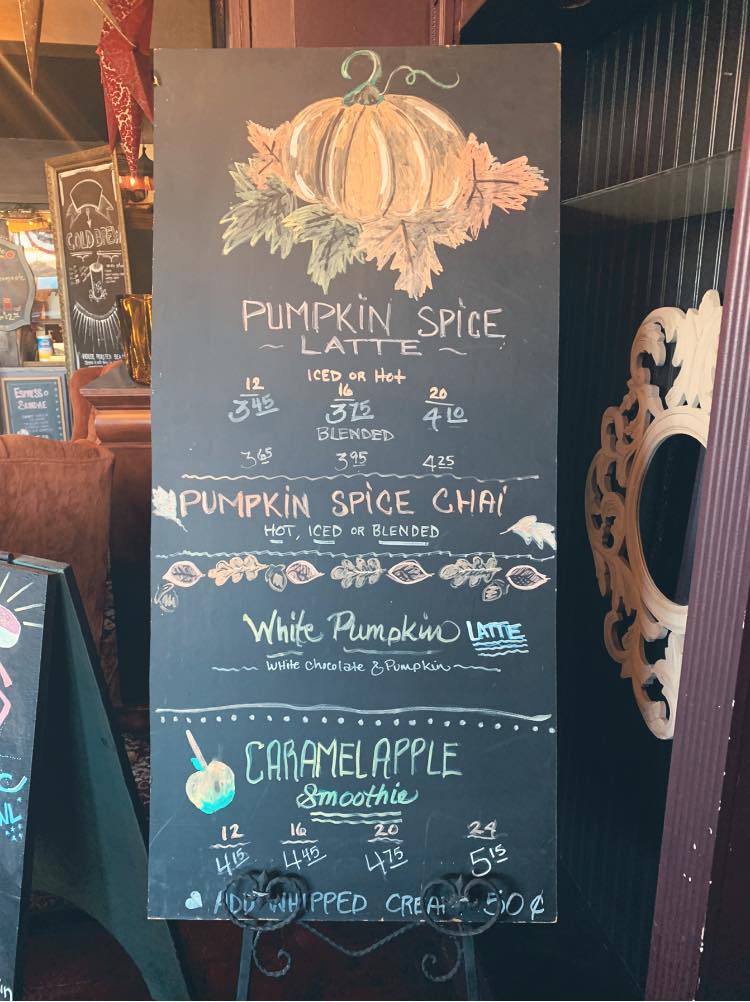 PUMPKIN SPICE
~ LATTE ~
ICED OR Hot
12 16 20
3.45 3.75 4.10
BLENDED
3.65 3.95 4.25
PUMPKIN SPICE CHAI
HOT, ICED OR BLENDED
White Pumpkin LATTE
White Chocolate & Pumpkin
CARAMEL APPLE
Smoothie
12 16 20 24
4.15 4.45 4.75 5.15
ADD WHIPPED CREAM 50¢
COLD BREW
ESPRESSO
SUNDAE